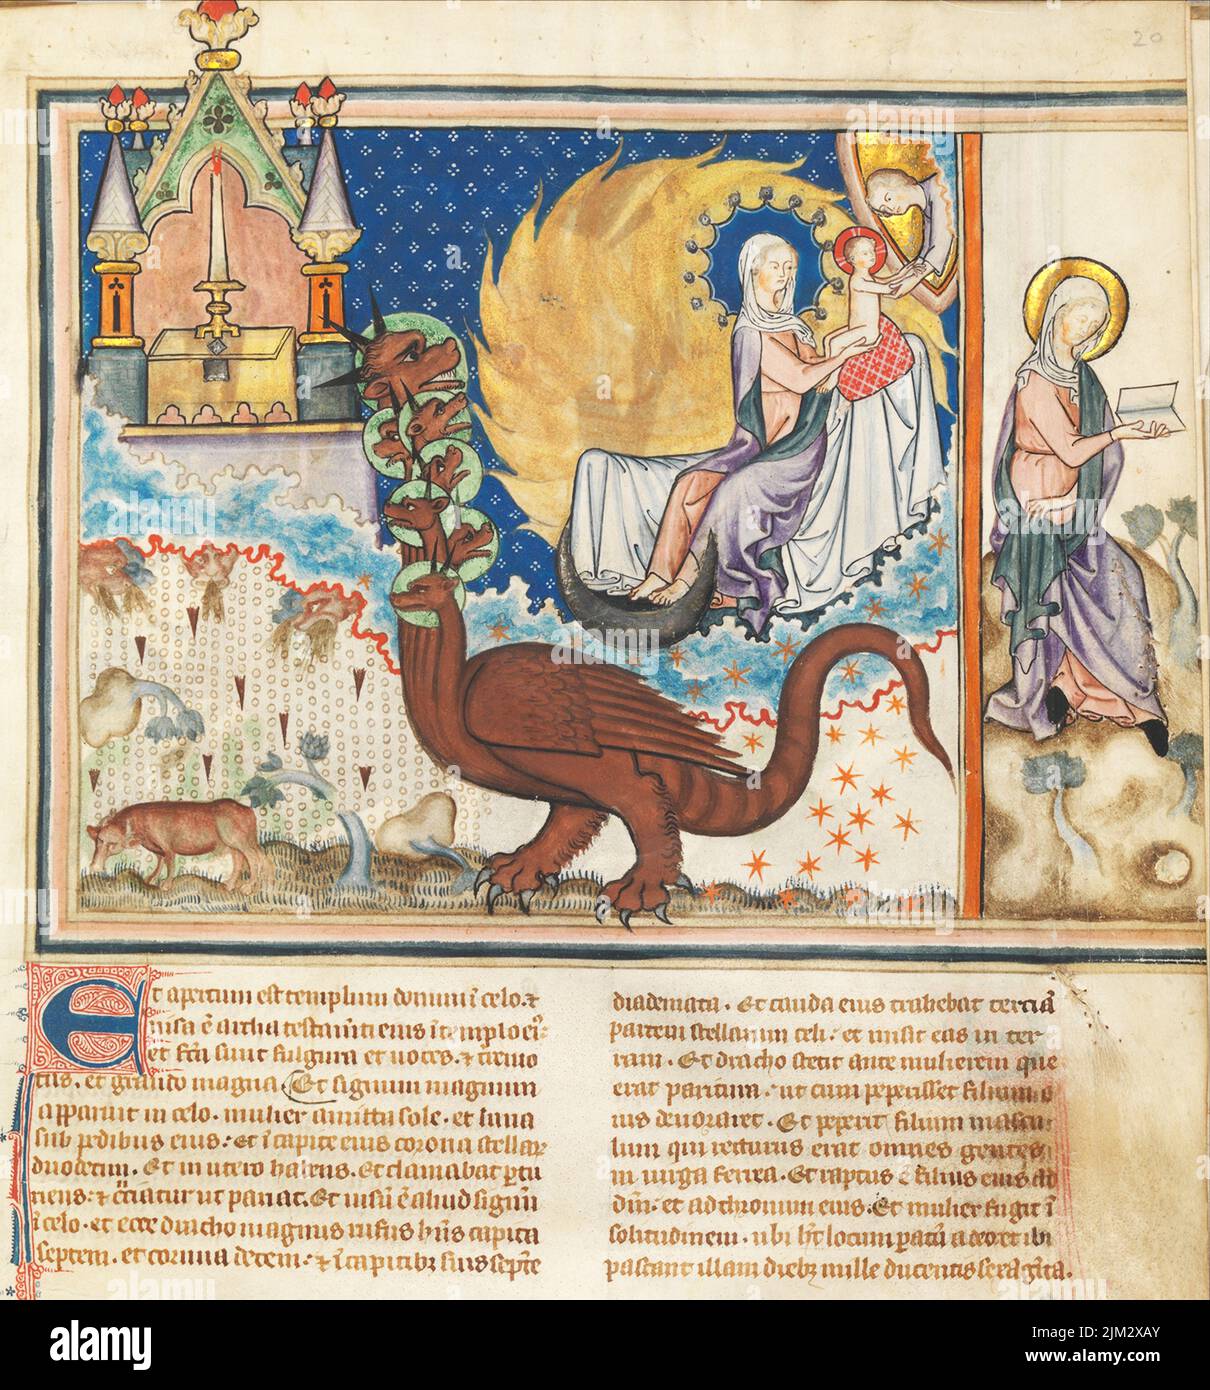 20
Et apertum est templum domini ī celo. ⁊
uisa ē archa testamēti eius ī templo eiꝰ:
et fc̄a sunt fulgura et uoces. ⁊ t̄remo
tus. et grando magna. Et signum magnum
apparuit in celo. mulier amicta sole. et luna
sub pedibus eius: et ī capite eius corona stellaꝝ
duodecim. Et in utero habens. Et clamabat ꝑtu
riens: ⁊ cͣciatur ut pariat. Et uisū ē aliud signū
ī celo. et ecce dracho magnus rufus hn̄s capita
septem. et cornua decem: ⁊ ī capitibꝫ suis septē
diademata. Et cauda eius trahebat terciā
partem stellarum celi. et misit eas in ter
ram. Et dracho stetit ante mulierem que
erat paritura. ut cum peperisset filium e
ius deuoraret. Et peperit filium mascu
lum qui recturus erat omnes gentes
in uirga ferrea. Et raptus ē filius eius ad
dm̄. et ad thronum eius. Et mulier fugit ī
solitudinem. ubi ht̄ locum ꝑatū a deo et ibi
pascant illam diebꝫ mille ducentis sexagīta.
alamy
Image ID: 2JM2XAY
www.alamy.com